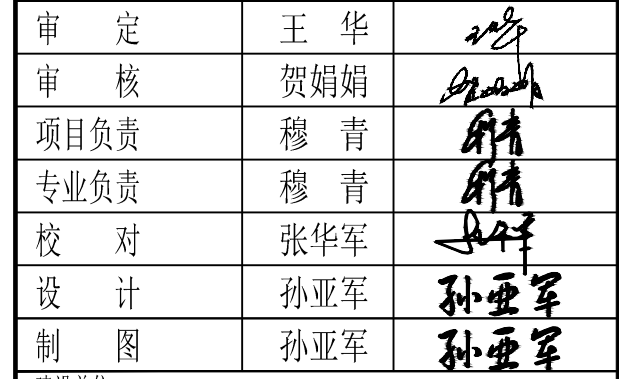 审 定 王 华 王华
审 核 贺娟娟 贺娟娟
项目负责 穆 青 穆青
专业负责 穆 青 穆青
校 对 张华军 张华军
设 计 孙亚军 孙亚军
制 图 孙亚军 孙亚军